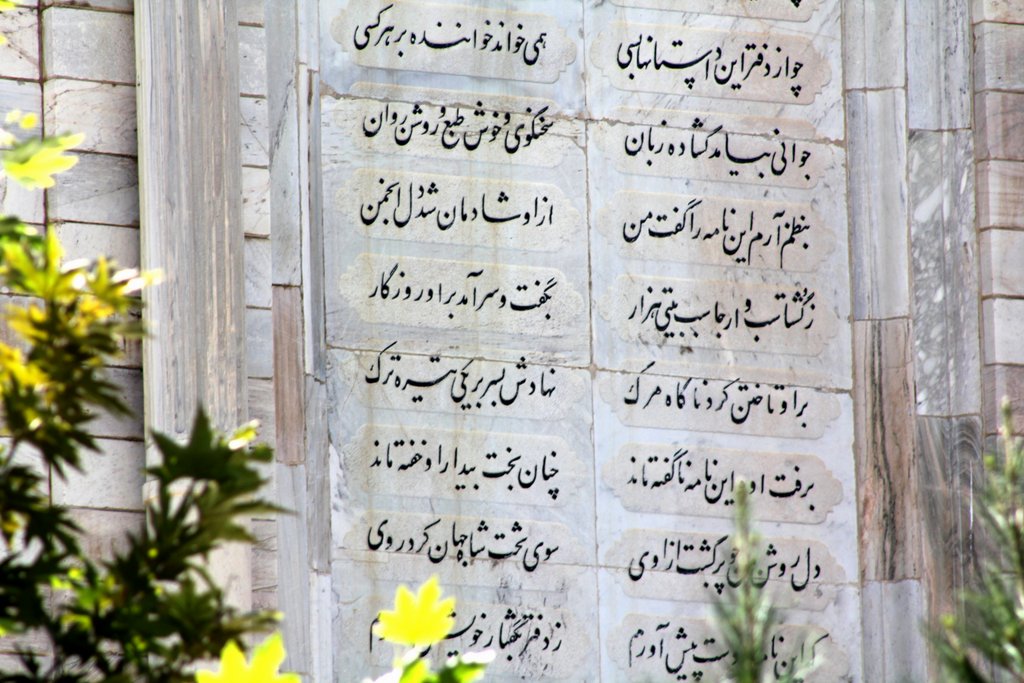 چو از دفتر این داستانها بسی همی خواند خواننده بر هر کسی
جوانی بیامد گشاده زبان سخنگوی و خوش طبع و روشن روان
بنظم آرم این نامه را گفت من از او شادمان شد دل انجمن
ز گشتاسب و ارجاسب بیتی هزار بگفت و سرآمد بر او روزگار
بر او تاختن کرد ناگاه مرگ نهادش بسر بر یکی تیره ترک
برفت او و این نامه ناگفته ماند چنان بخت بیدار او خفته ماند
دل روشن چو برگشت از اوی سوی تخت شاه جهان کرد روی
که این نامه دست پیش آورم ز دفتر بگفتار خویش